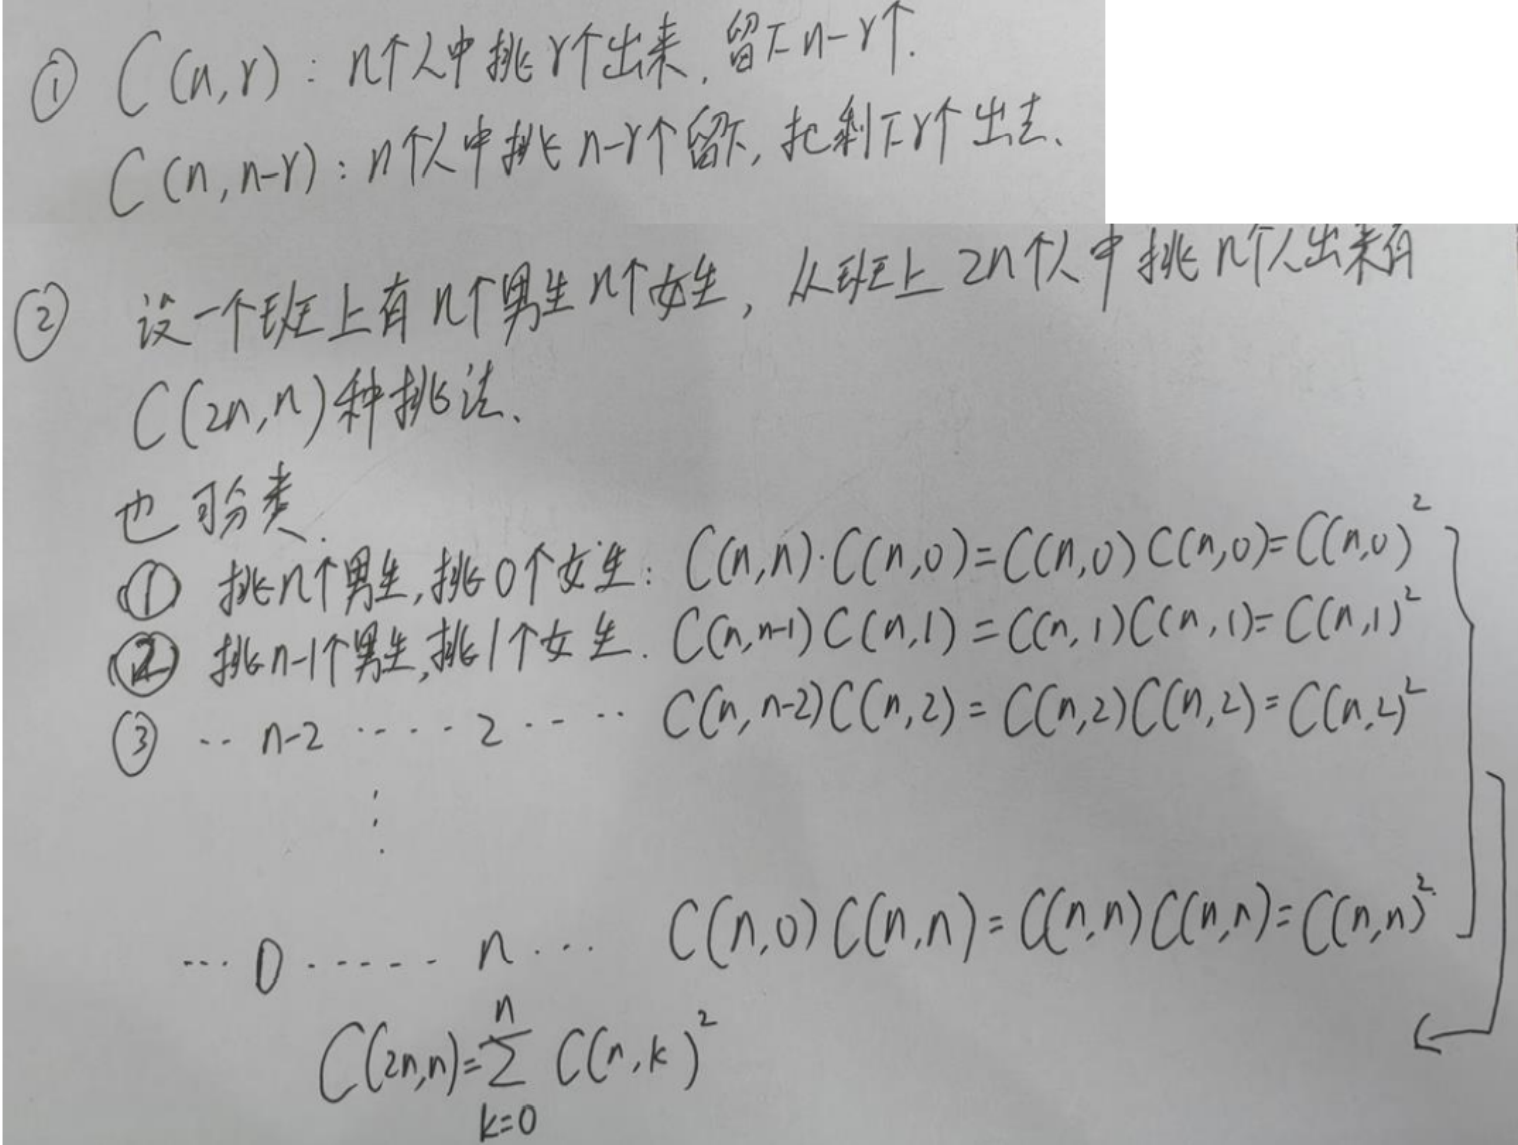 ① C(n,r): n个人中挑r个出来,留下n-r个.
C(n,n-r): n个人中挑n-r个留下,把剩下r个出去.
② 设一个班上有n个男生n个女生,从班上2n个人中挑n个人出来有
C(2n,n)种挑法.
也可分类.
① 挑n个男生,挑0个女生: C(n,n)·C(n,0)=C(n,0)C(n,0)=C(n,0)²
② 挑n-1个男生,挑1个女生. C(n,n-1)C(n,1)=C(n,1)C(n,1)=C(n,1)²
③ ·· n-2 ····· 2 ···· C(n,n-2)C(n,2)=C(n,2)C(n,2)=C(n,2)²
⋮
··· 0 ······ n ··· C(n,0)C(n,n)=C(n,n)C(n,n)=C(n,n)²
n
C(2n,n)=∑ C(n,k)²
k=0